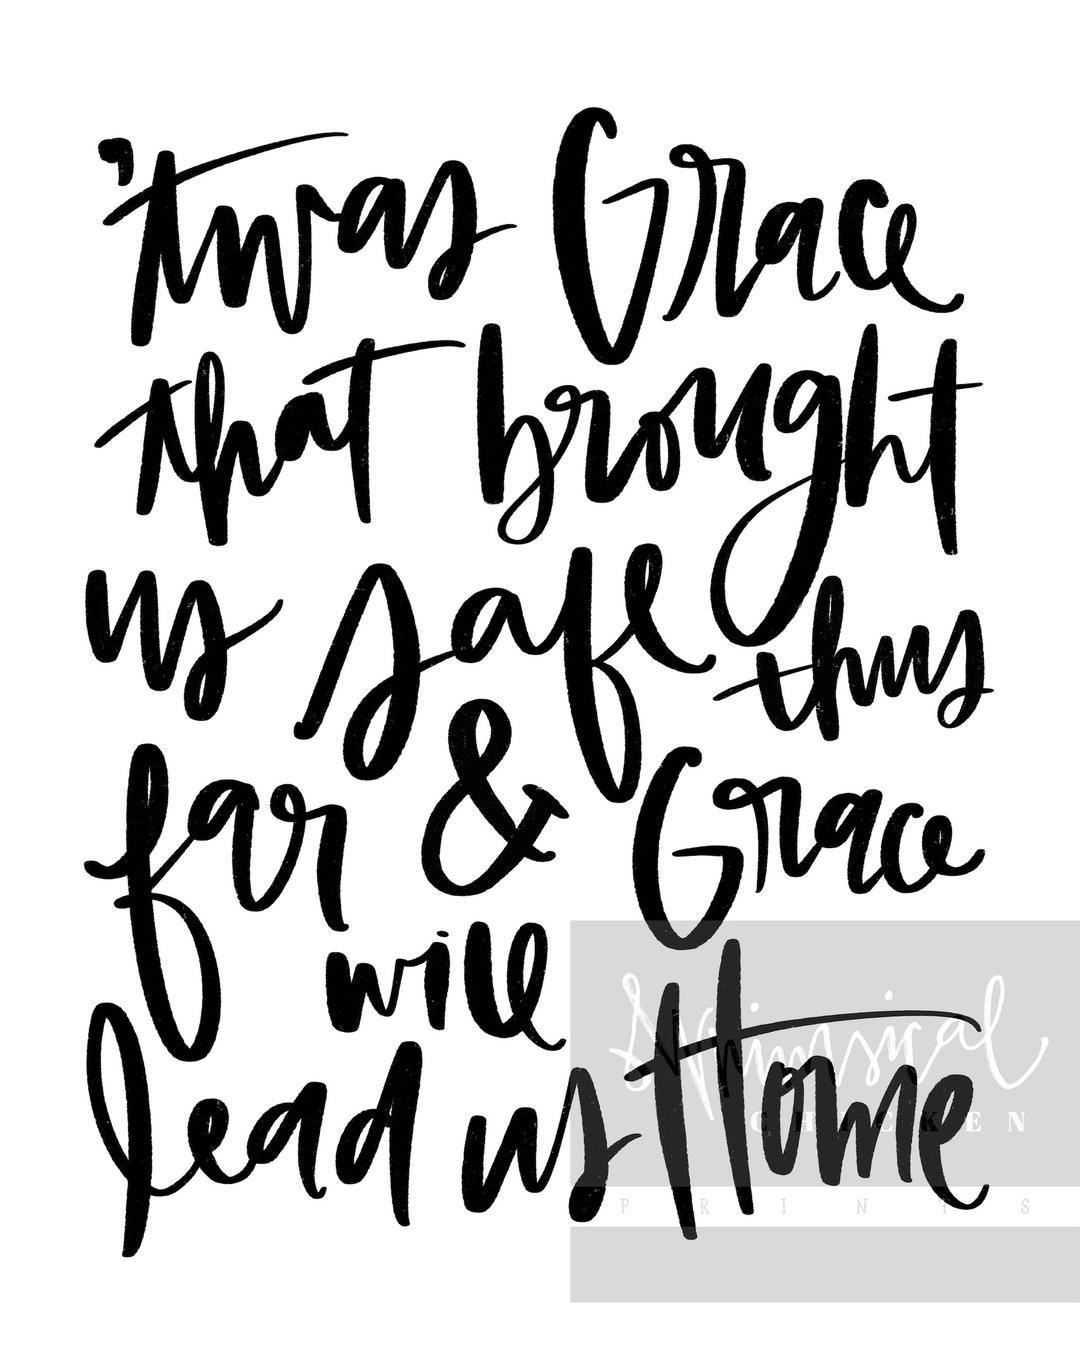 'twas Grace
that brought
us safe thus
far & Grace
will
lead us Home
Whimsical
CHICKEN
PRINTS